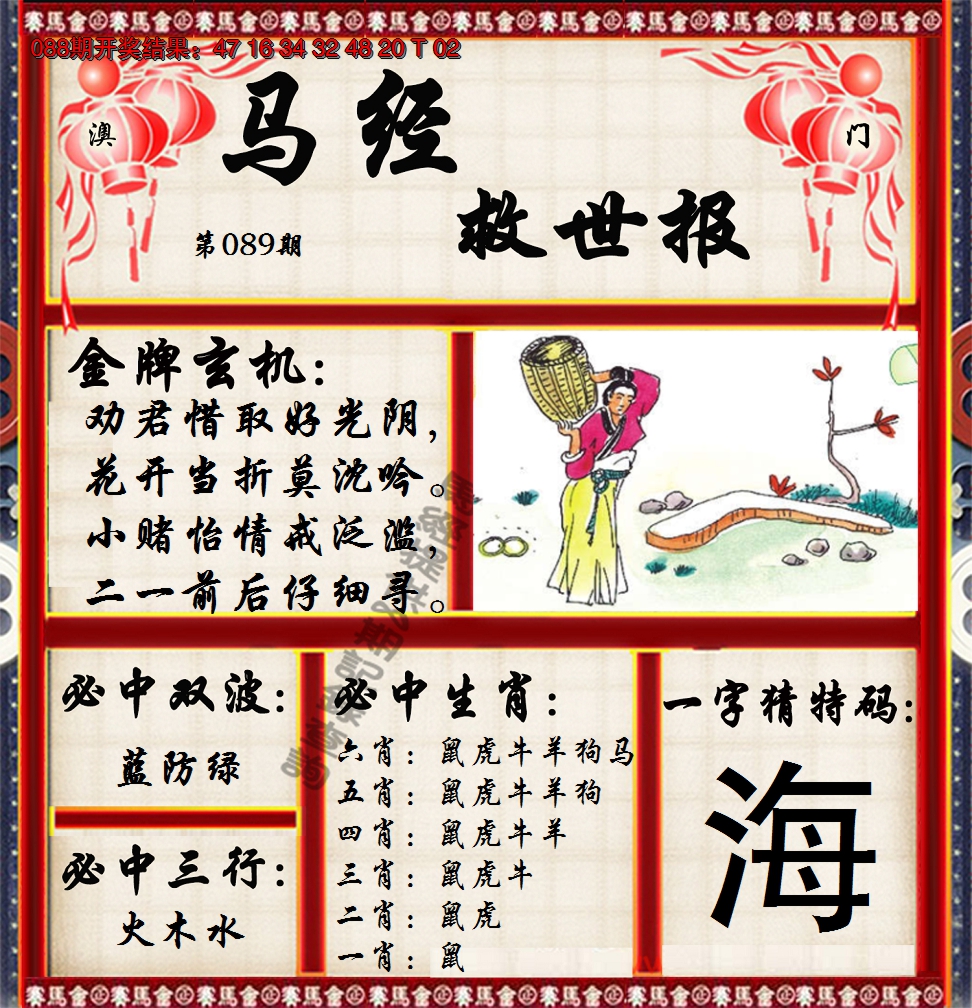 088期开奖结果：47 16 34 32 48 20 T 02
澳 门
马经
救世报
第089期
金牌玄机：
劝君惜取好光阴，
花开当折莫沈吟。
小赌怡情戒泛滥，
二一前后仔细寻。
必中双波：
蓝防绿
必中三行：
火木水
必中生肖：
六肖：鼠虎牛羊狗马
五肖：鼠虎牛羊狗
四肖：鼠虎牛羊
三肖：鼠虎牛
二肖：鼠虎
一肖：鼠
一字猜特码：
海